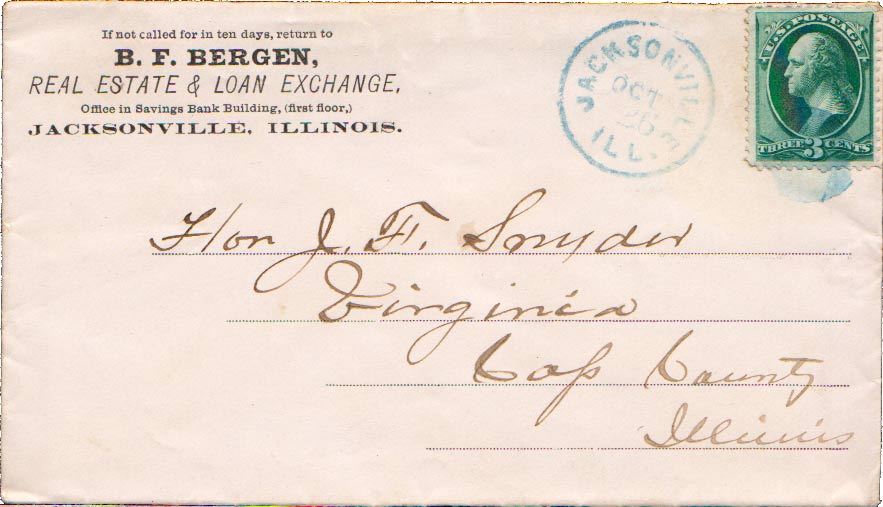 If not called for in ten days, return to
B. F. BERGEN,
REAL ESTATE & LOAN EXCHANGE,
Office in Savings Bank Building, (first floor,)
JACKSONVILLE, ILLINOIS.
JACKSONVILLE
OCT
26
ILL.
U.S. POSTAGE
THREE 3 CENTS
Hon J. F. Snyder
Virginia
Caſs County
Illinois